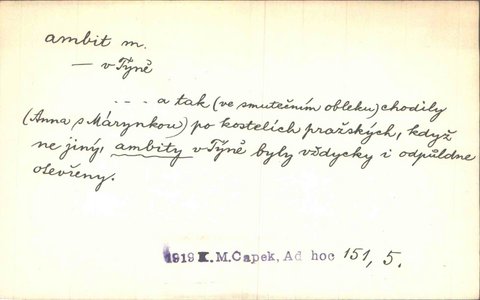 ambit m.
— v Týně
... a tak (ve smutečním obleku) chodily
(Anna s Márynkou) po kostelích pražských, když
ne jiný, ambity v Týně byly vždycky i odpůldne
otevřeny.
1919 K. M. Čapek, Ad hoc 151, 5.